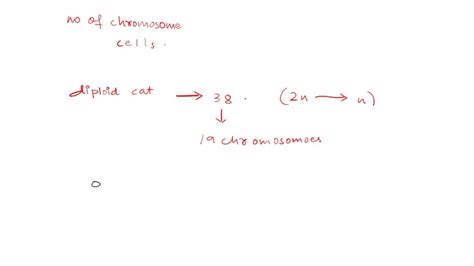 no of chromosome
cells.
diploid cat → 38. (2n → n)
↓
19 chromosomoes